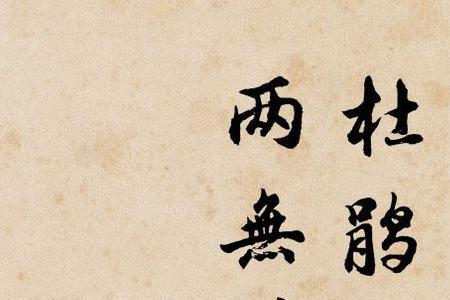 杜鹃
两無